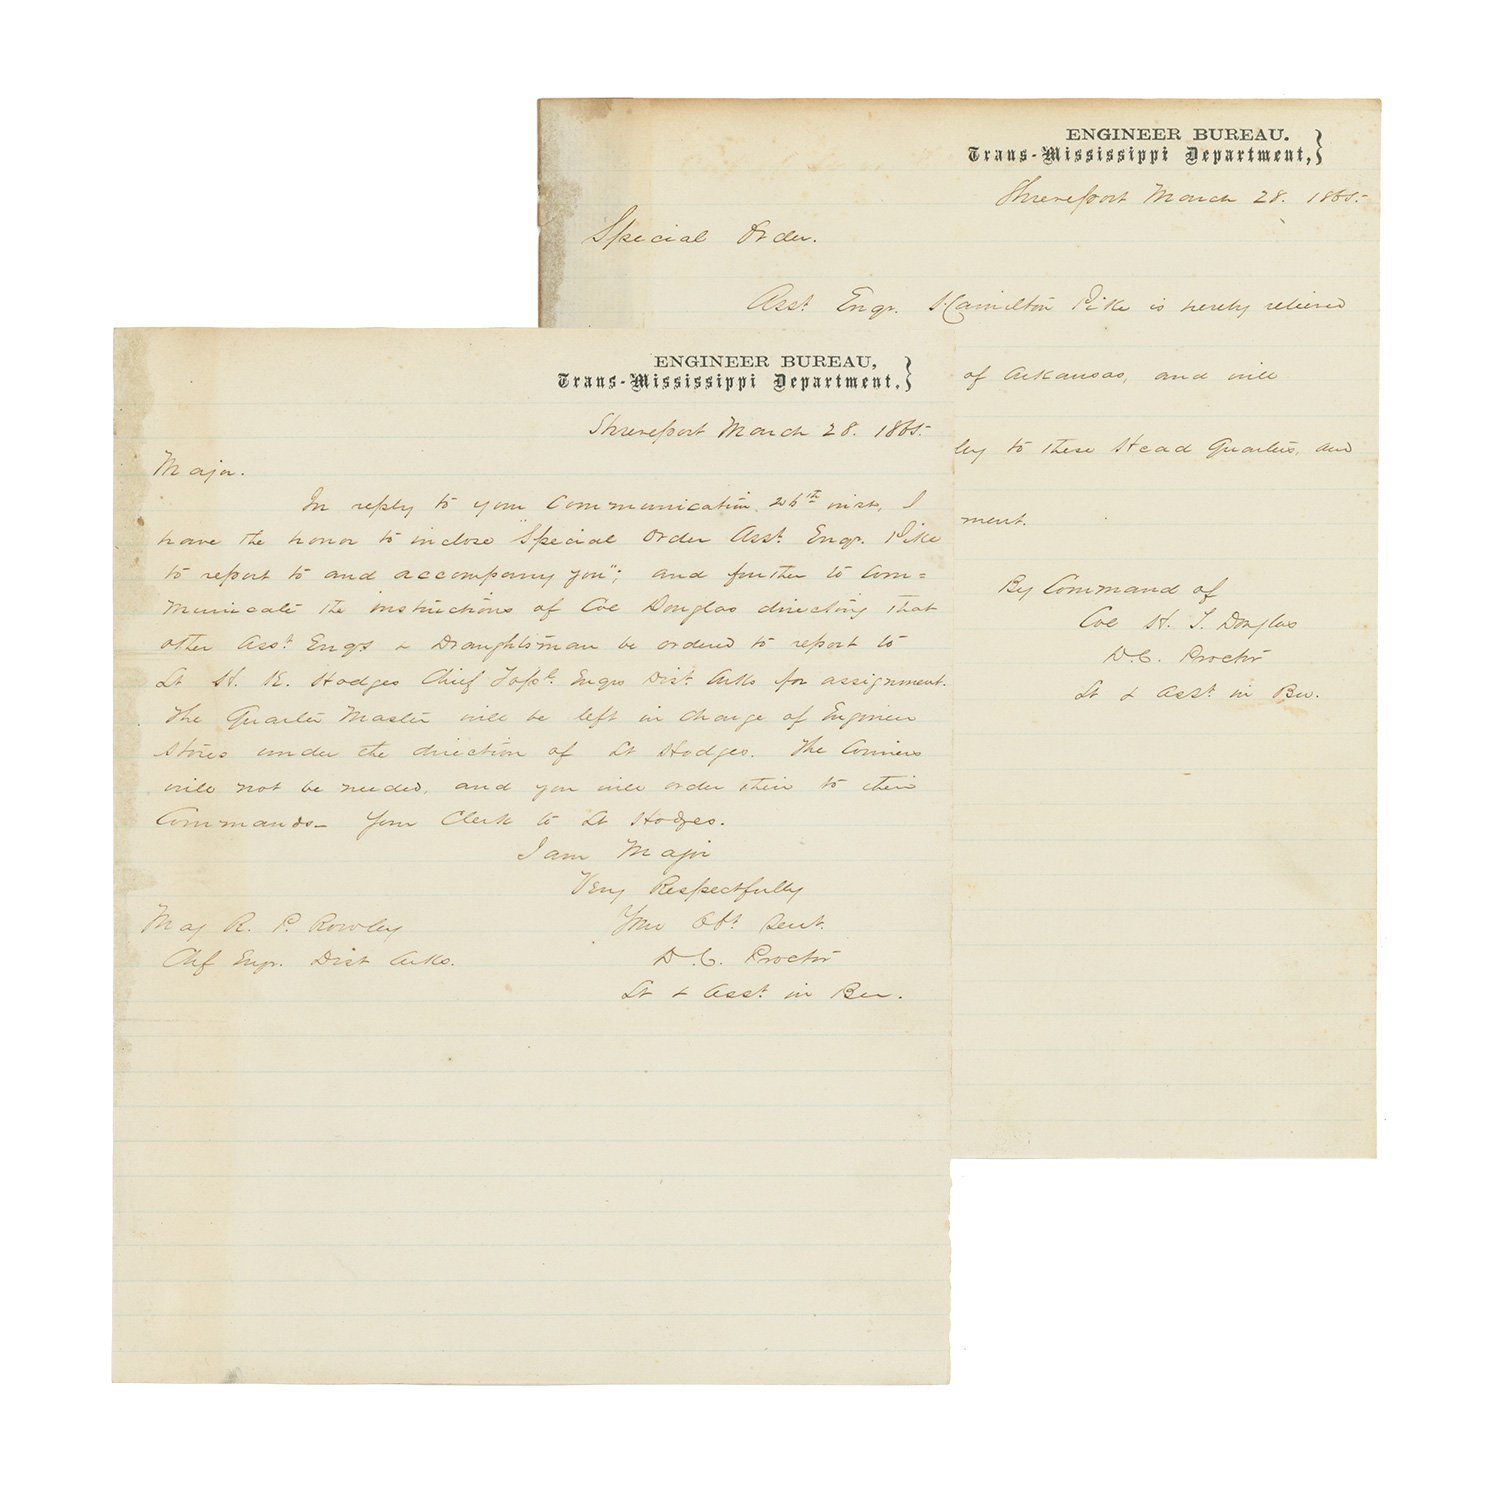 ENGINEER BUREAU.
Trans-Mississippi Department,
Shreveport March 28. 1865.
Special Order.
Asst Engr. Hamilton Pike is hereby relieved
of Arkansas, and will
ley to these Head Quarters, and
ment.
By Command of
Col H. T. Douglas
D.C. Proctor
Lt & Asst in Bu.
ENGINEER BUREAU,
Trans-Mississippi Department,
Shreveport March 28. 1865.
Major.
In reply to your Communication 26th inst, I
have the honor to inclose "Special Order Asst Engr. Pike
to report to and accompany you"; and further to Com=
municate the instructions of Col Douglas directing that
other Asst Engs & Draughtsman be ordered to report to
Lt H. R. Hodges Chief Topl. Engrs Dist Arks for assignment.
The Quarter Master will be left in charge of Engineer
stores under the direction of Lt Hodges. The Couriers
will not be needed, and you will order them to their
Commands_ Your Clerk to Lt Hodges.
I am Major
Very Respectfully
Your Obt Servt.
D.C. Proctor
Lt & Asst in Bu.
Maj R. P. Rowley
Chf Engr. Dist Arks.